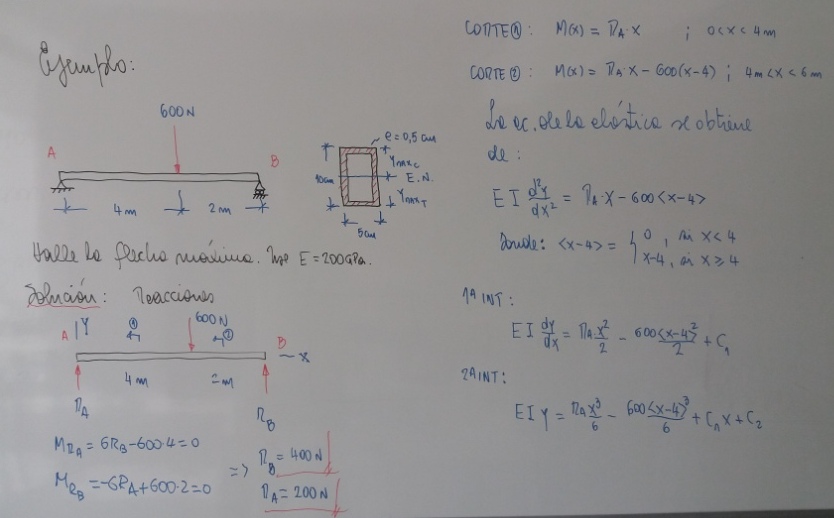 Ejemplo:
600N
A
B
4m
2m
e=0,5 cm
10cm
Ymáx_C
E.N.
Ymáx_T
5cm
Halle la flecha máxima. Use E = 200GPa.
Solución: Reacciones
Y
A
①
600N
②
B
x
4m
2m
R_A
R_B
M_{R_A} = 6R_B - 600·4 = 0
M_{R_B} = -6R_A + 600·2 = 0
=> R_B = 400N
R_A = 200N
CORTE①: M(x) = R_A·x ; 0<x<4m
CORTE②: M(x) = R_A·x - 600(x-4) ; 4m<x<6m
La ec. de la elástica se obtiene
de:
EI d²y/dx² = R_A·x - 600<x-4>
Donde: <x-4> = { 0, si x<4
x-4, si x≥4
1ª INT:
EI dy/dx = R_A·x²/2 - 600<x-4>²/2 + C₁
2ª INT:
EI y = R_A x³/6 - 600<x-4>³/6 + C₁x + C₂